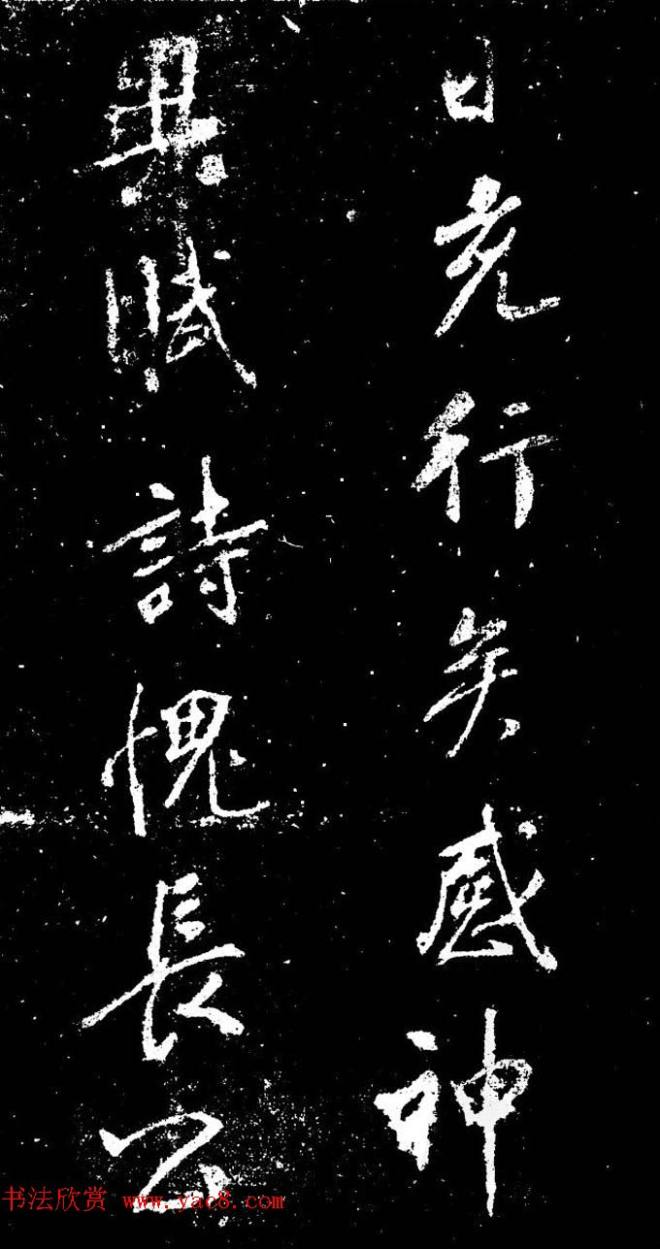 日行矣感神
賦詩愧長公
书法欣赏 www.yac8.com